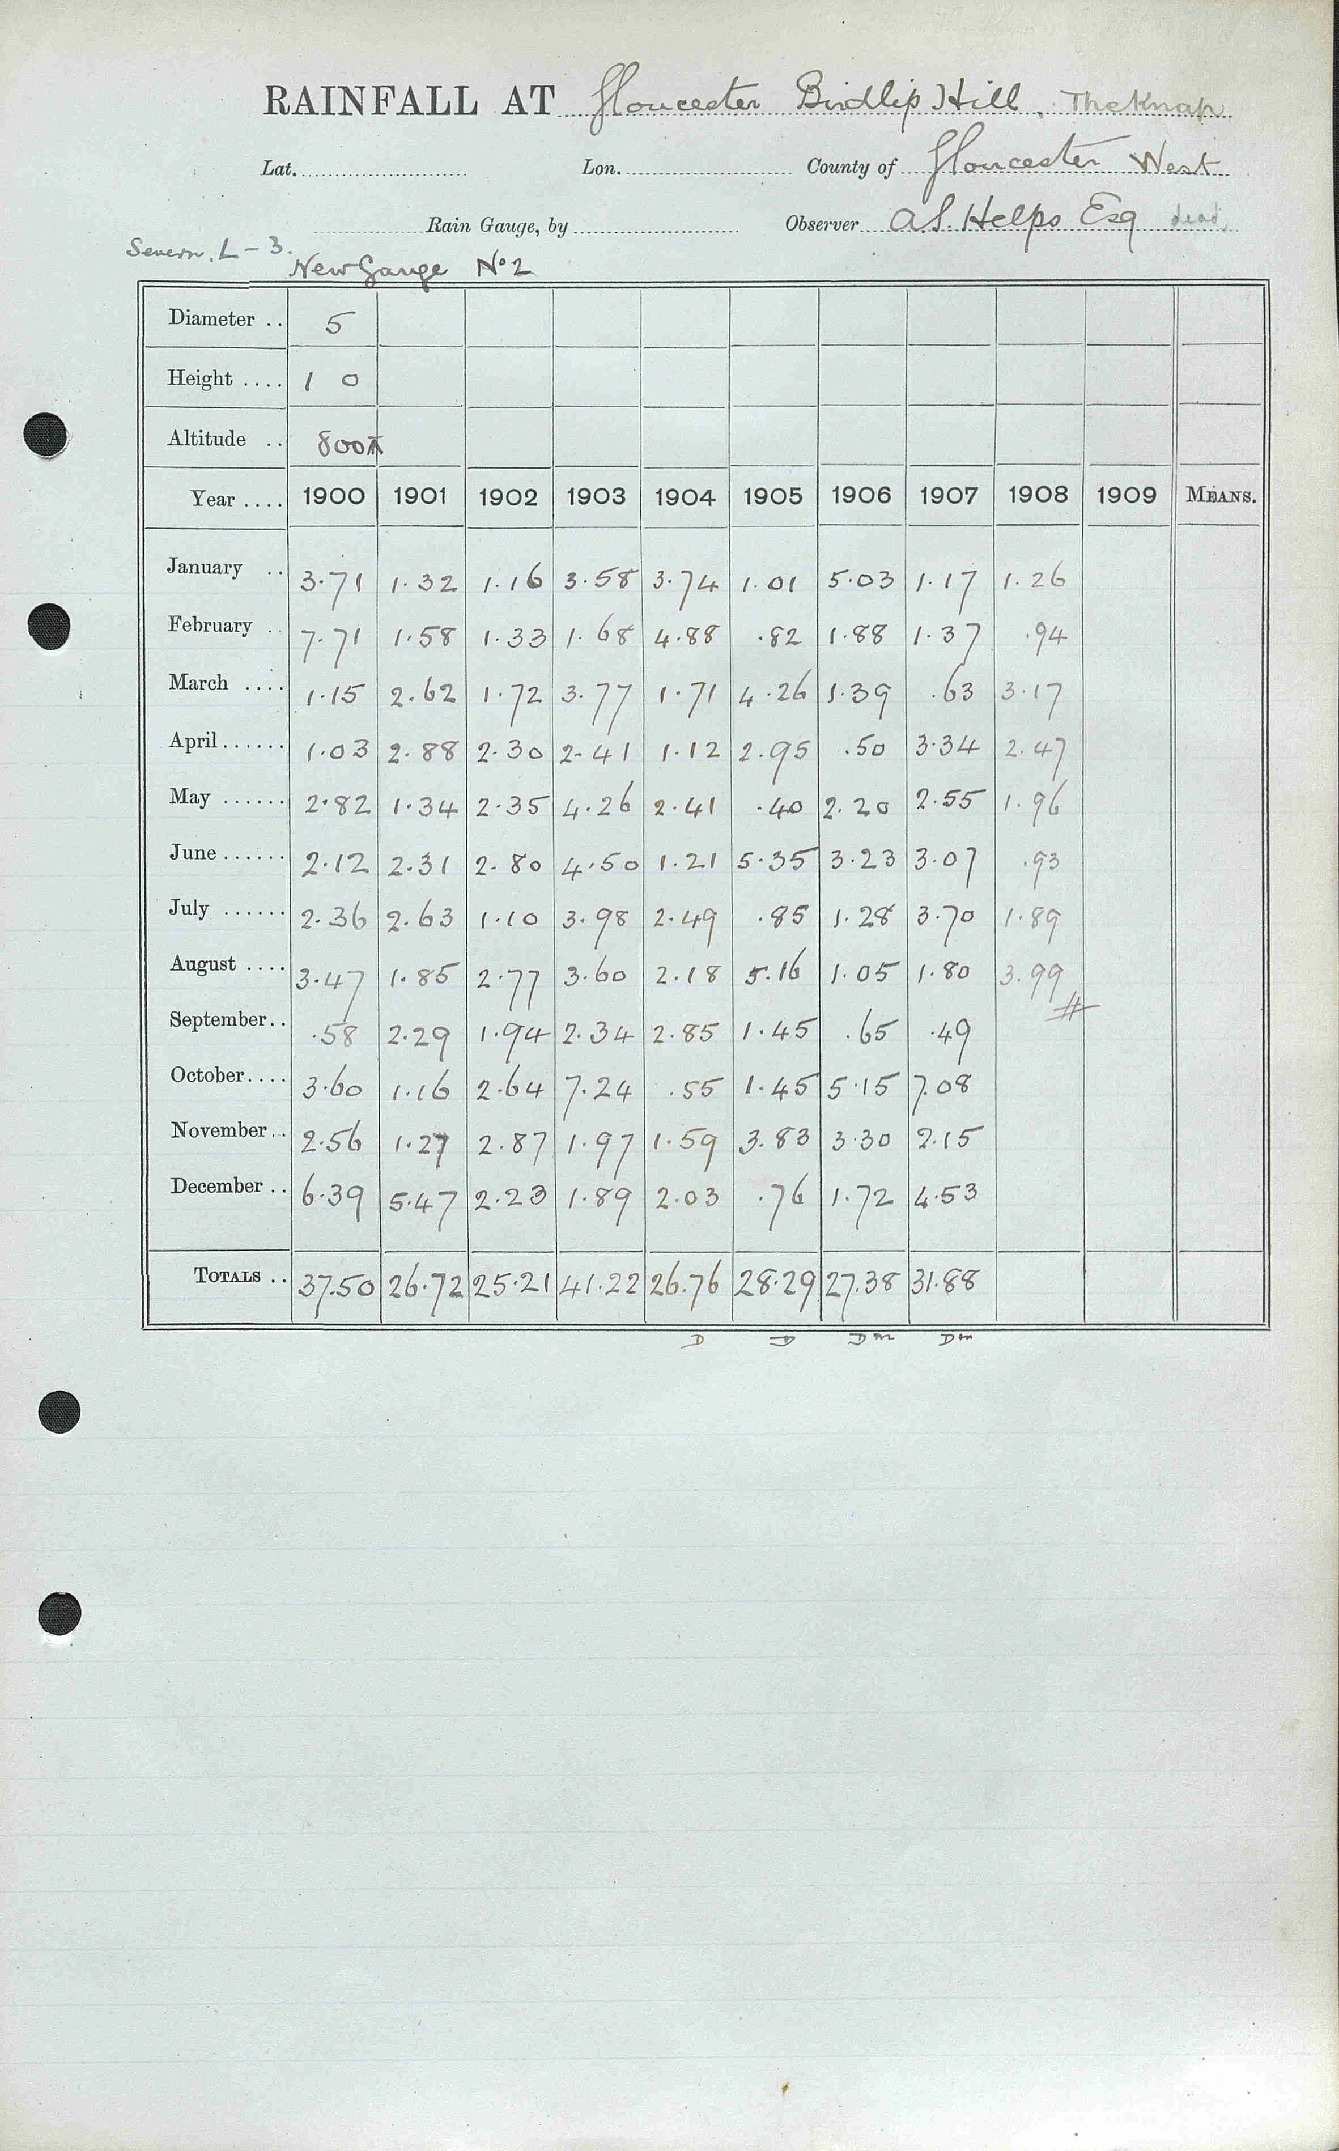 RAINFALL AT Gloucester Birdlip Hill. The Knap
Lat. Lon. County of Gloucester West
Rain Gauge, by Observer A.S. Helps Esq dead
Severn. L - 3.
New Gauge No 2
Diameter .. 5
Height .... 1 0
Altitude .. 800 ft
Year .... 1900 1901 1902 1903 1904 1905 1906 1907 1908 1909 MEANS.
January .. 3.71 1.32 1.16 3.58 3.74 1.01 5.03 1.17 1.26
February .. 7.71 1.58 1.33 1.68 4.88 .82 1.88 1.37 .94
March .... 1.15 2.62 1.72 3.77 1.71 4.26 1.39 .63 3.17
April...... 1.03 2.88 2.30 2.41 1.12 2.95 .50 3.34 2.47
May ...... 2.82 1.34 2.35 4.26 2.41 .40 2.20 2.55 1.96
June ...... 2.12 2.31 2.80 4.50 1.21 5.35 3.23 3.07 .93
July ...... 2.36 2.63 1.10 3.98 2.49 .85 1.28 3.70 1.89
August .... 3.47 1.85 2.77 3.60 2.18 5.16 1.05 1.80 3.99
September.. .58 2.29 1.94 2.34 2.85 1.45 .65 .49
October.... 3.60 1.16 2.64 7.24 .55 1.45 5.15 7.08
November .. 2.56 1.27 2.87 1.97 1.59 3.83 3.30 2.15
December .. 6.39 5.47 2.23 1.89 2.03 .76 1.72 4.53
TOTALS .. 37.50 26.72 25.21 41.22 26.76 28.29 27.38 31.88
D D Dm Dm